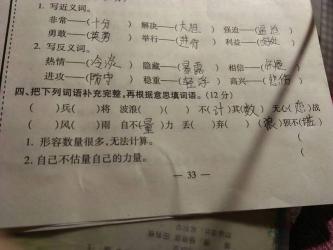 1. 写近义词。
非常——(十分) 解决——( ) 强迫——(逼迫)
勇敢——(英勇) 举行——(进行) 利益——(好处)
2. 写反义词。
热情——(冷淡) 隐藏——(暴露) 相信——(怀疑)
进攻——(防守) 稳重——(轻浮) 高兴——(悲伤)
四、把下列词语补充完整,再根据意思填词语。(12分)
( )兵( )将 波浪( )( ) 不(计)其(数) 无心(恋)战
( )风( )雨 自不(量)力 丢( )弃( ) (狼)狈不(堪)
1. 形容数量很多,无法计算。 (
2. 自己不估量自己的力量。 (
— 33 —